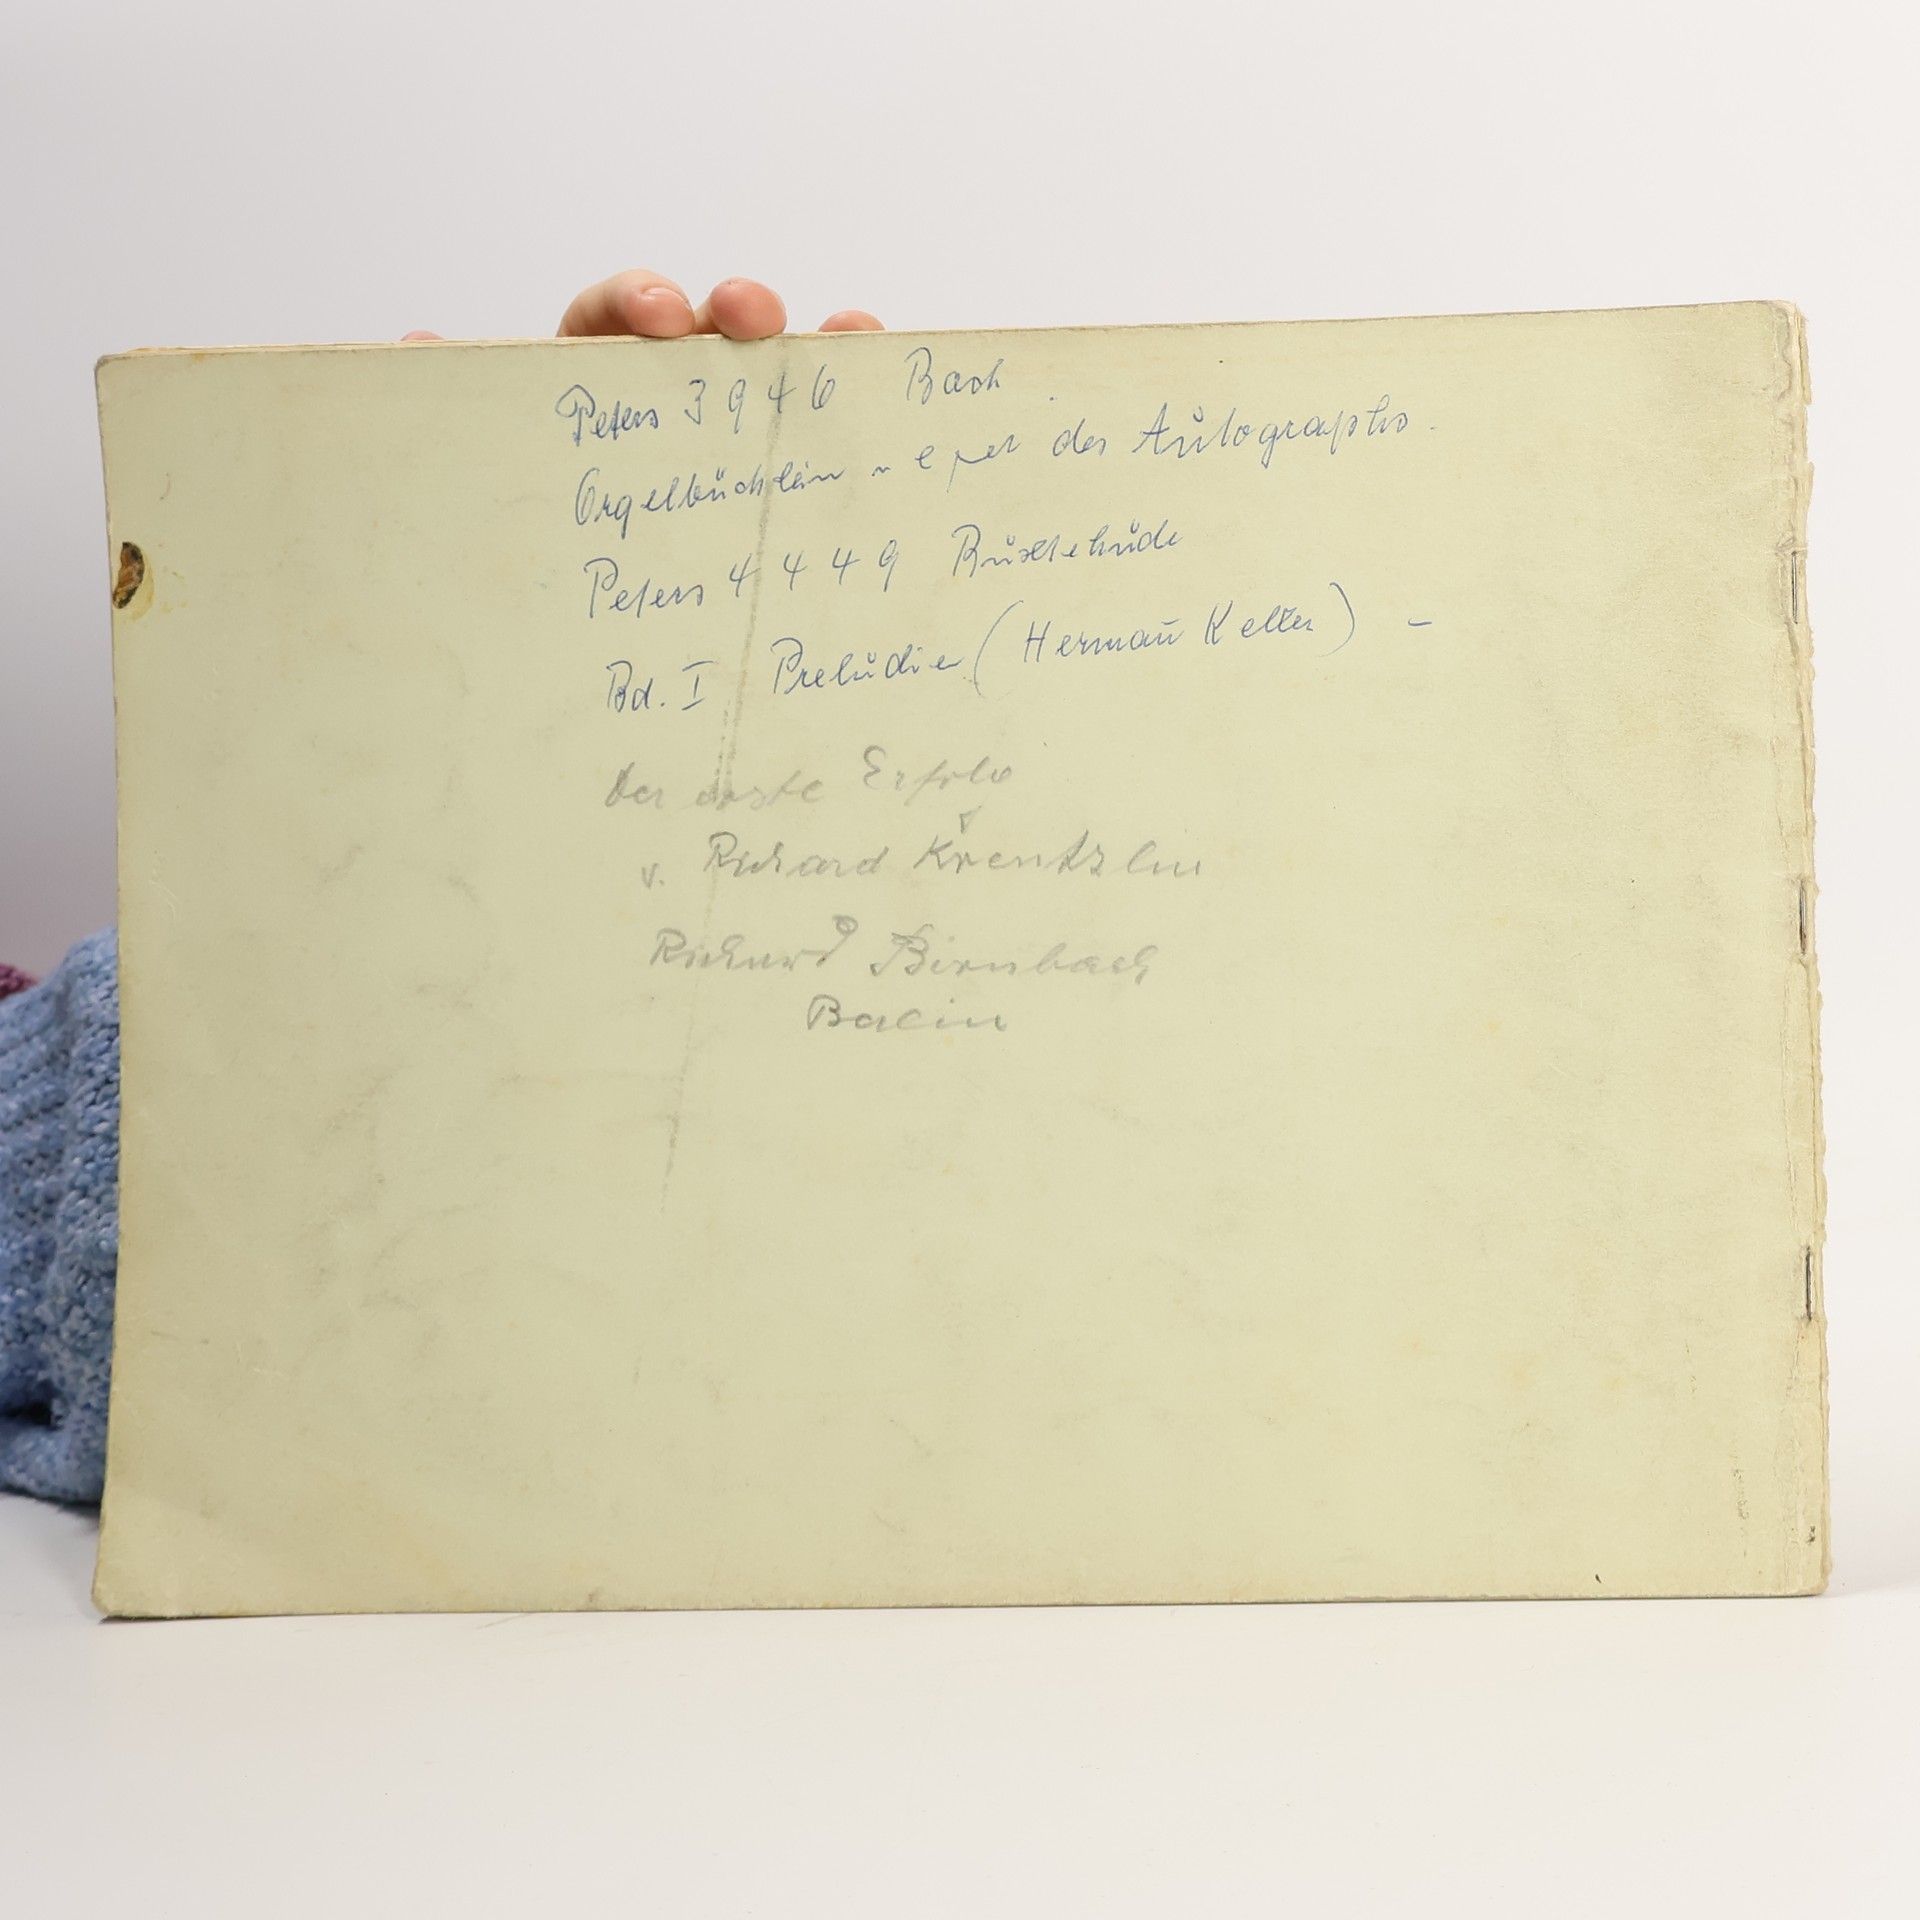 Peters 3946 Bach
Orgelbüchlein des Autographs.
Peters 4449 Buxtehude
Bd. I Preludien (Hermañ Keller) –
Der erste Erfolg
v. Richard Krentzlin
Richard Birnbach
Berlin